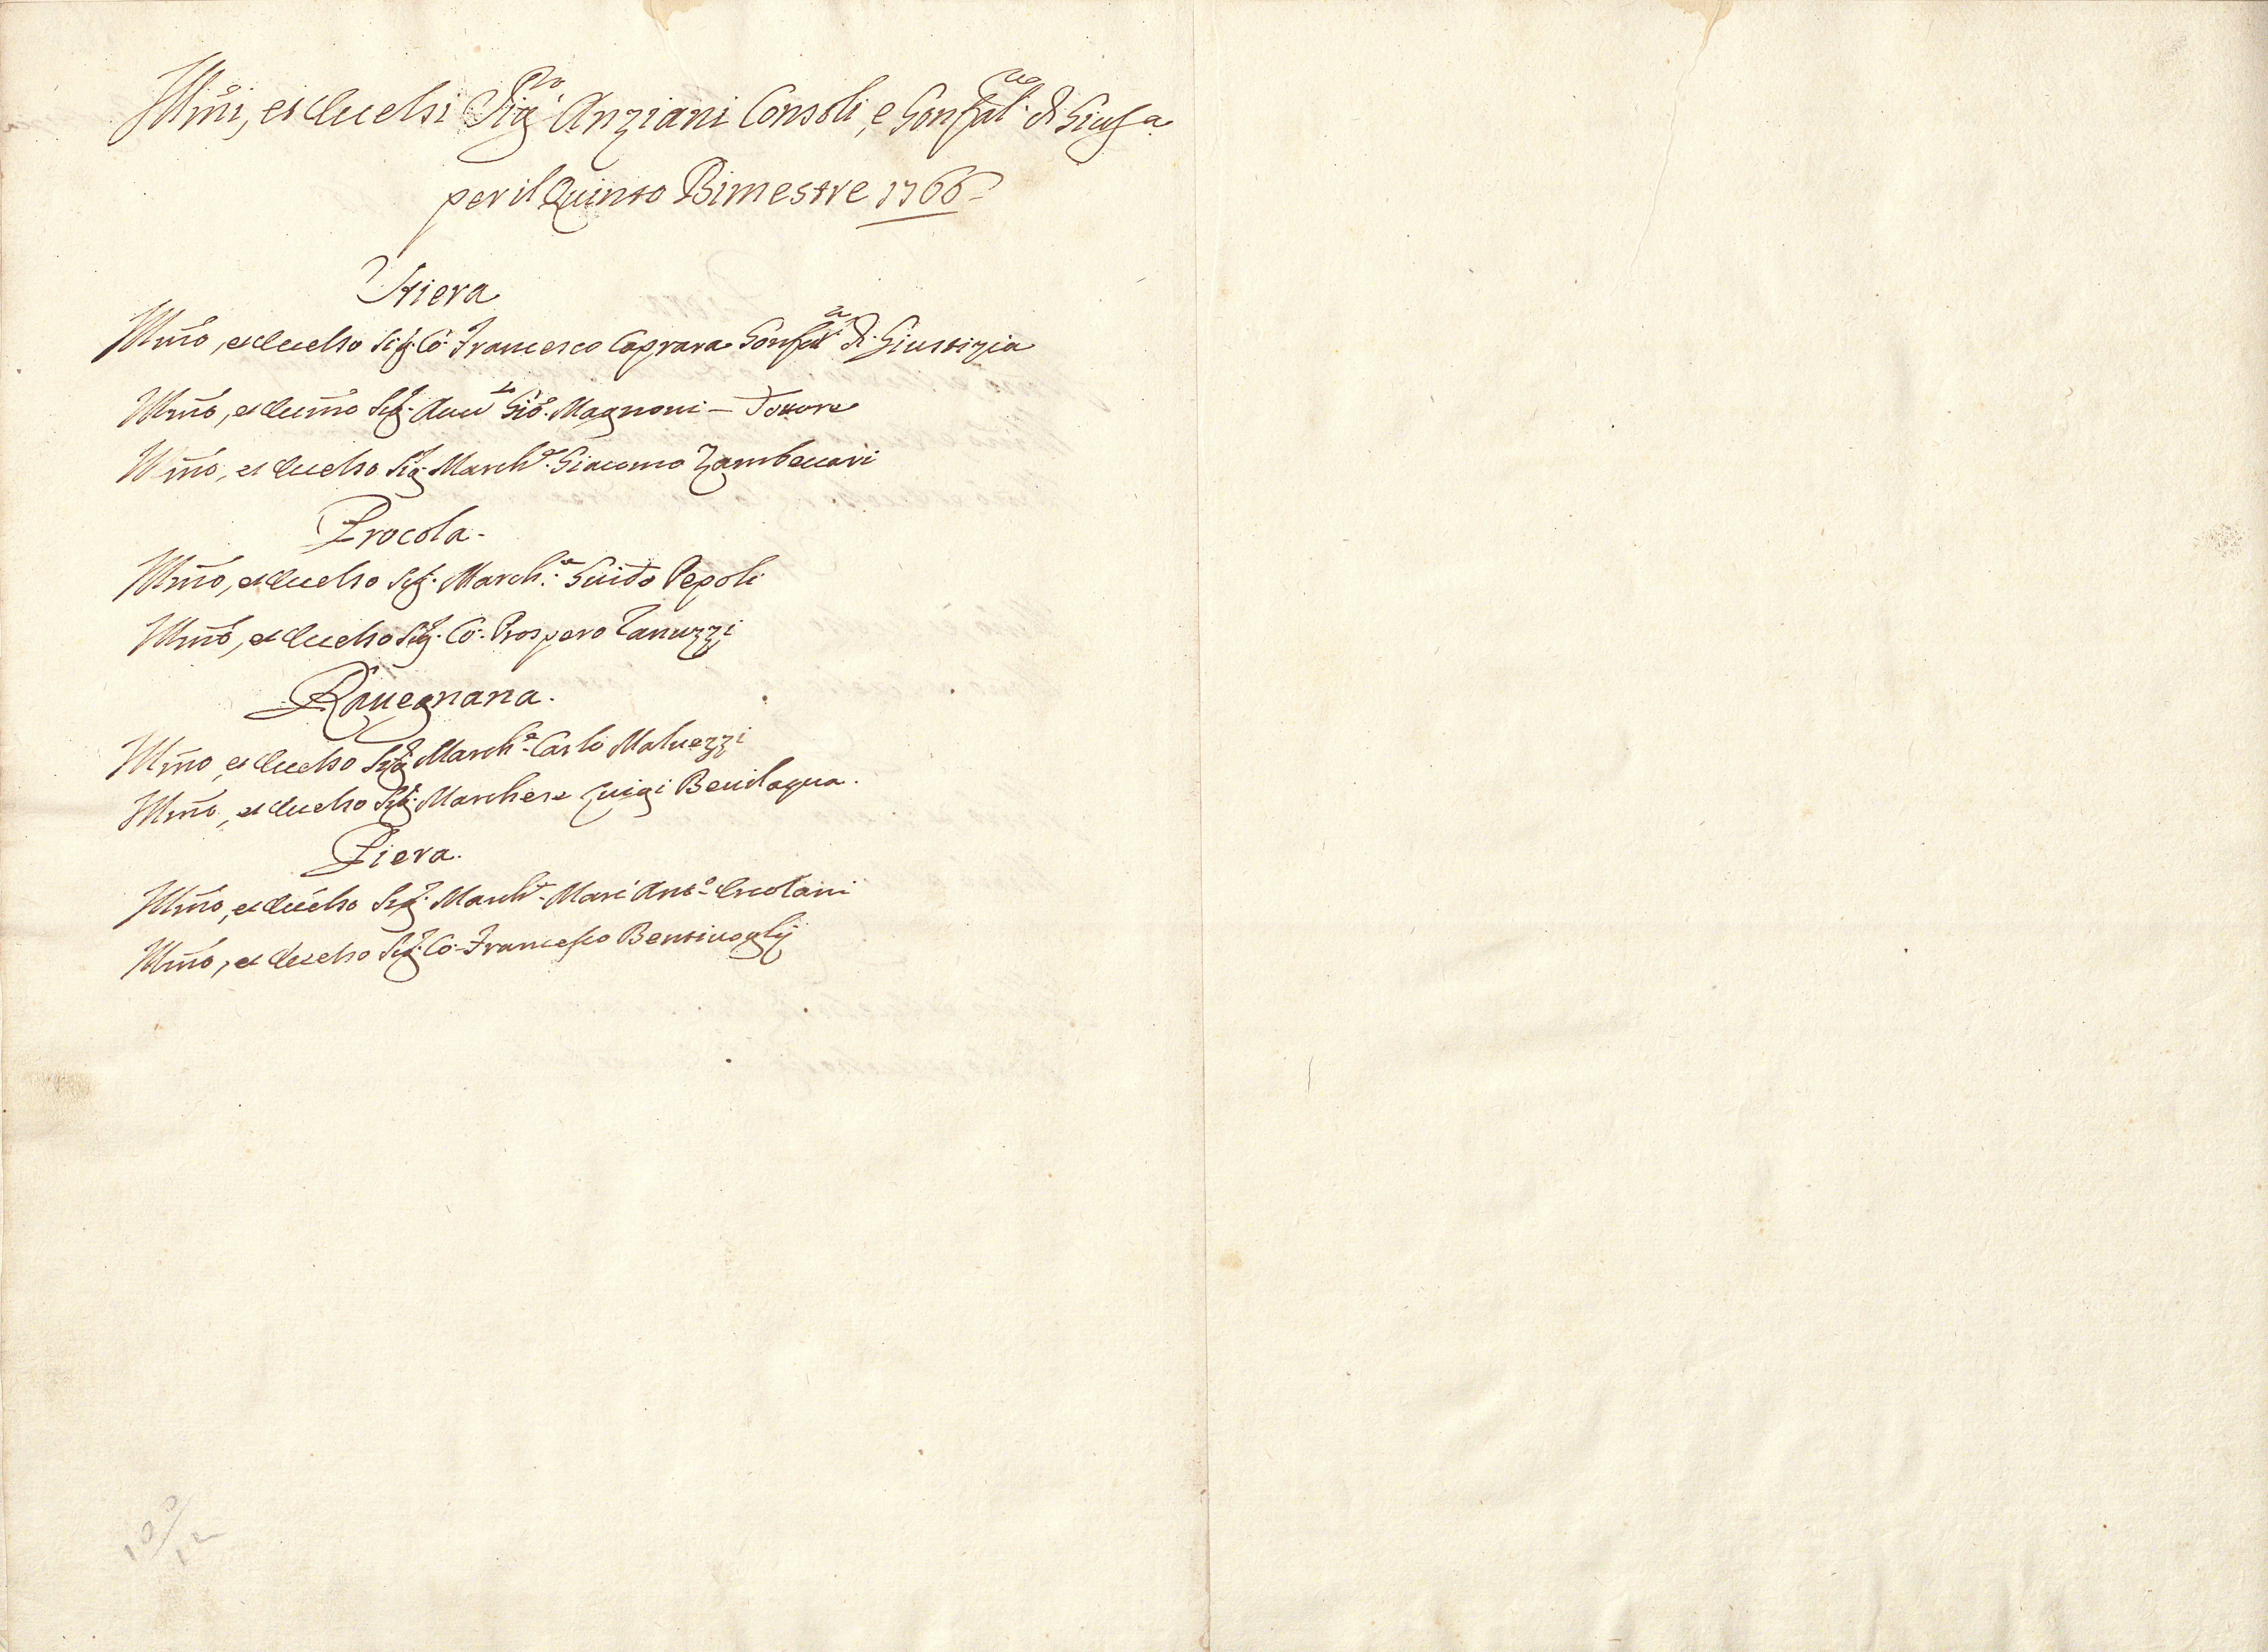 Illm̃i, et Eccelsi Sig.ri Anziani Consoli, e Gonfal.re di Giusa
per il Quinto Bimestre 1766
Stiera
Illm̃o, et Eccelso Sig. Co. Francesco Caprara Gonfal.re di Giustizia
Illm̃o, et Eccm̃o Sig. Avv.to Gio. Magnoni – Dottore
Illm̃o, et Eccelso Sig. March.e Giacomo Zambeccari
Procola
Illm̃o, et Eccelso Sig. March.e Guido Pepoli
Illm̃o, et Eccelso Sig. Co. Prospero Ranuzzi
Ravegnana.
Illm̃o, et Eccelso Sig. March.e Carlo Malvezzi
Illm̃o, et Eccelso Sig. Marchese Luigi Bevilaqua.
Piera.
Illm̃o, et Eccelso Sig. March.e Marc'Ant.o Ercolani
Illm̃o, et Eccelso Sig. Co. Francesco Bentivoglij